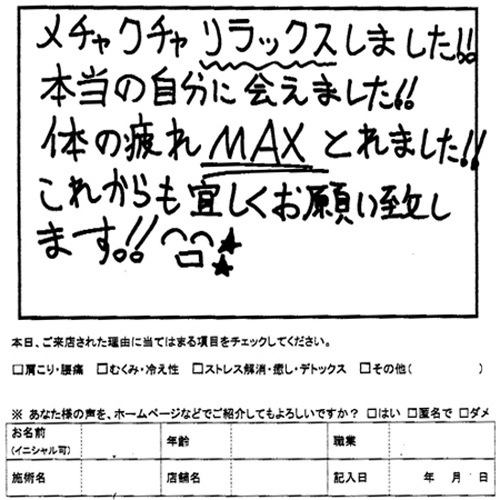 メチャクチャリラックスしました!!
本当の自分に会えました!!
体の疲れMAXとれました!!
これからも宜しくお願い致し
ます。!!
本日、ご来店された理由に当てはまる項目をチェックしてください。
□肩こり・腰痛 □むくみ・冷え性 □ストレス解消・癒し・デトックス □その他( )
※ あなた様の声を、ホームページなどでご紹介してもよろしいですか? □はい □匿名で □ダメ
お名前 年齢 職業
(イニシャル可)
施術名 店舗名 記入日 年 月 日